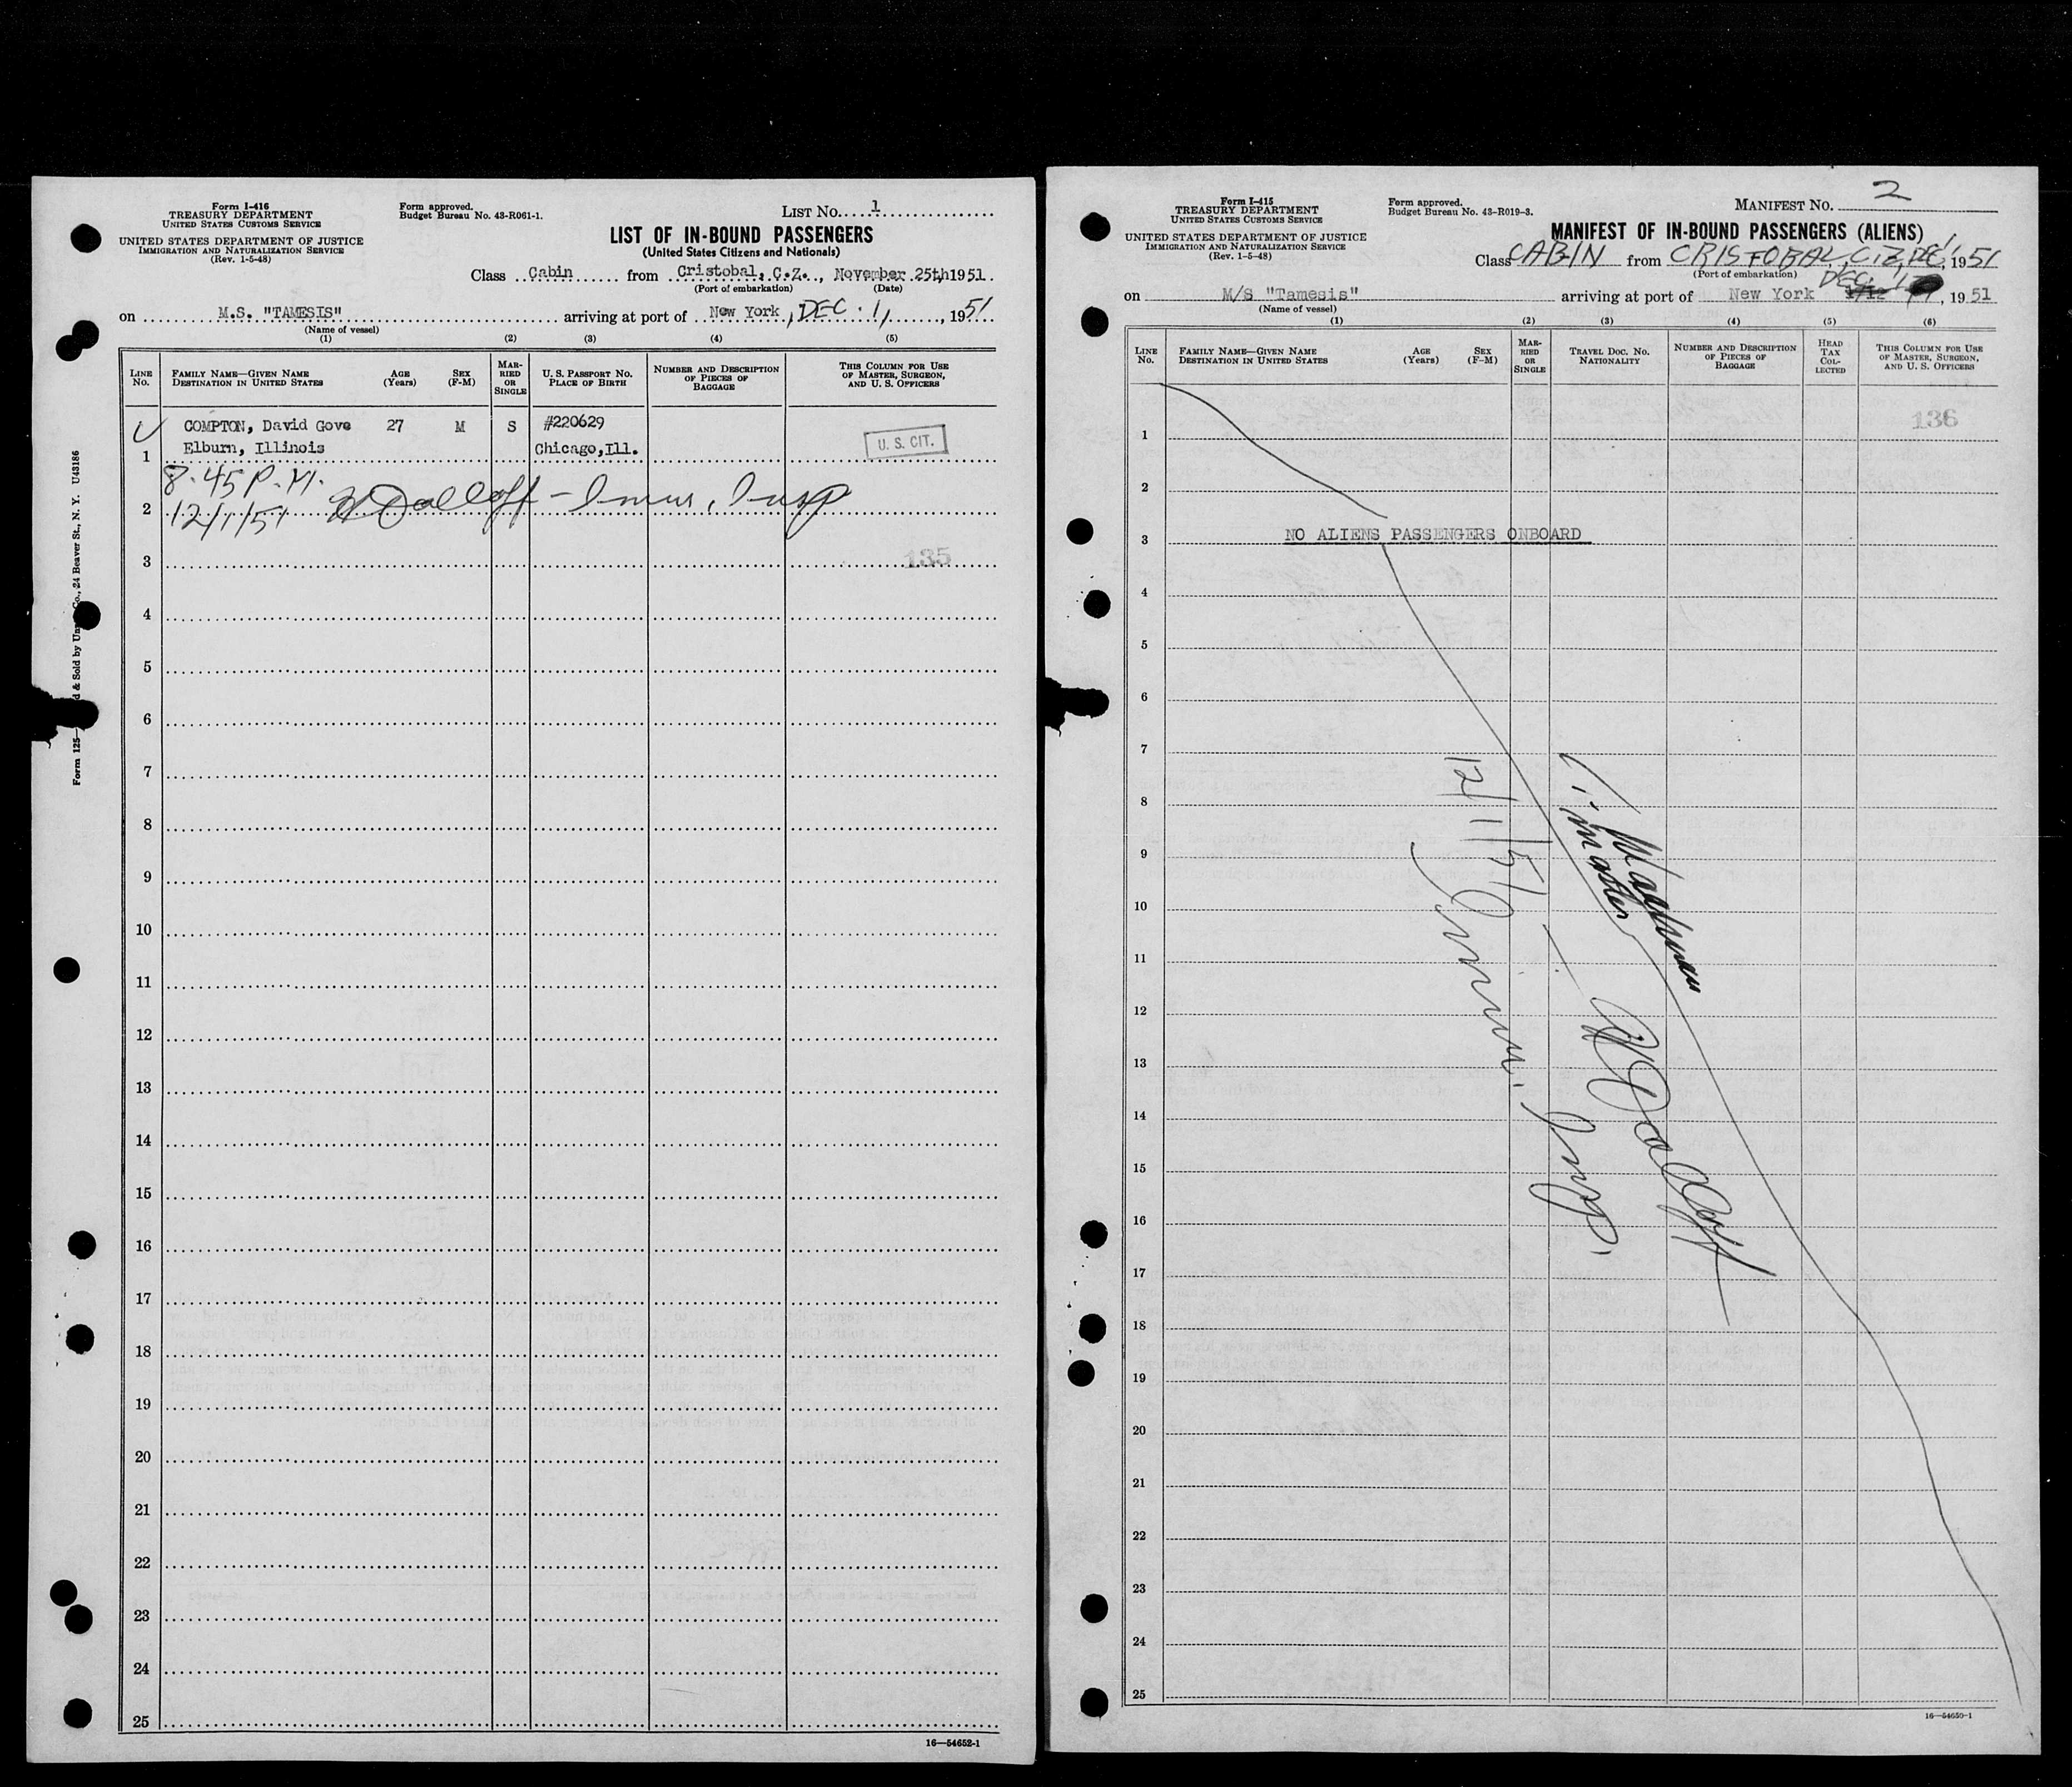 Form I-416
TREASURY DEPARTMENT
UNITED STATES CUSTOMS SERVICE
UNITED STATES DEPARTMENT OF JUSTICE
IMMIGRATION AND NATURALIZATION SERVICE
(Rev. 1-5-48)
Form approved.
Budget Bureau No. 43-R061-1.
LIST No. 1
LIST OF IN-BOUND PASSENGERS
(United States Citizens and Nationals)
Class Cabin from Cristobal, C.Z., November 25th 1951.
(Port of embarkation) (Date)
on M.S. "TAMESIS" arriving at port of New York, DEC. 1, 1951
(Name of vessel)
(1) (2) (3) (4) (5)
LINE No. FAMILY NAME—GIVEN NAME DESTINATION IN UNITED STATES AGE (Years) SEX (F-M) MARRIED OR SINGLE U. S. PASSPORT NO. PLACE OF BIRTH NUMBER AND DESCRIPTION OF PIECES OF BAGGAGE THIS COLUMN FOR USE OF MASTER, SURGEON, AND U. S. OFFICERS
COMPTON, David Gove 27 M S #220629
1 Elburn, Illinois Chicago,Ill. U. S. CIT.
8.45 P.M.
2 12/1/51 Dalloff - Immi, Insp
3 135
4
5
6
7
8
9
10
11
12
13
14
15
16
17
18
19
20
21
22
23
24
25
16—54652-1
Form 125— d & Sold by Co., 24 Beaver St., N. Y. U43186
Form I-415
TREASURY DEPARTMENT
UNITED STATES CUSTOMS SERVICE
UNITED STATES DEPARTMENT OF JUSTICE
IMMIGRATION AND NATURALIZATION SERVICE
(Rev. 1-5-48)
Form approved.
Budget Bureau No. 43-R019-3.
MANIFEST No. 2
MANIFEST OF IN-BOUND PASSENGERS (ALIENS)
Class CABIN from CRISTOBAL, C.Z, 1951
(Port of embarkation)
on M/S "Tamesis" arriving at port of New York DEC 1, 1951
(Name of vessel)
(1) (2) (3) (4) (5) (6)
LINE No. FAMILY NAME—GIVEN NAME DESTINATION IN UNITED STATES AGE (Years) SEX (F-M) MARRIED OR SINGLE TRAVEL DOC. NO. NATIONALITY NUMBER AND DESCRIPTION OF PIECES OF BAGGAGE HEAD TAX COLLECTED THIS COLUMN FOR USE OF MASTER, SURGEON, AND U. S. OFFICERS
136
1
2
3 NO ALIENS PASSENGERS ONBOARD
4
5
6
7
8
9
10
11
12
13
14
15
16
17
18
19
20
21
22
23
24
25
master
12/1/51 - Dalloff
Immi. Insp.
16—54650-1